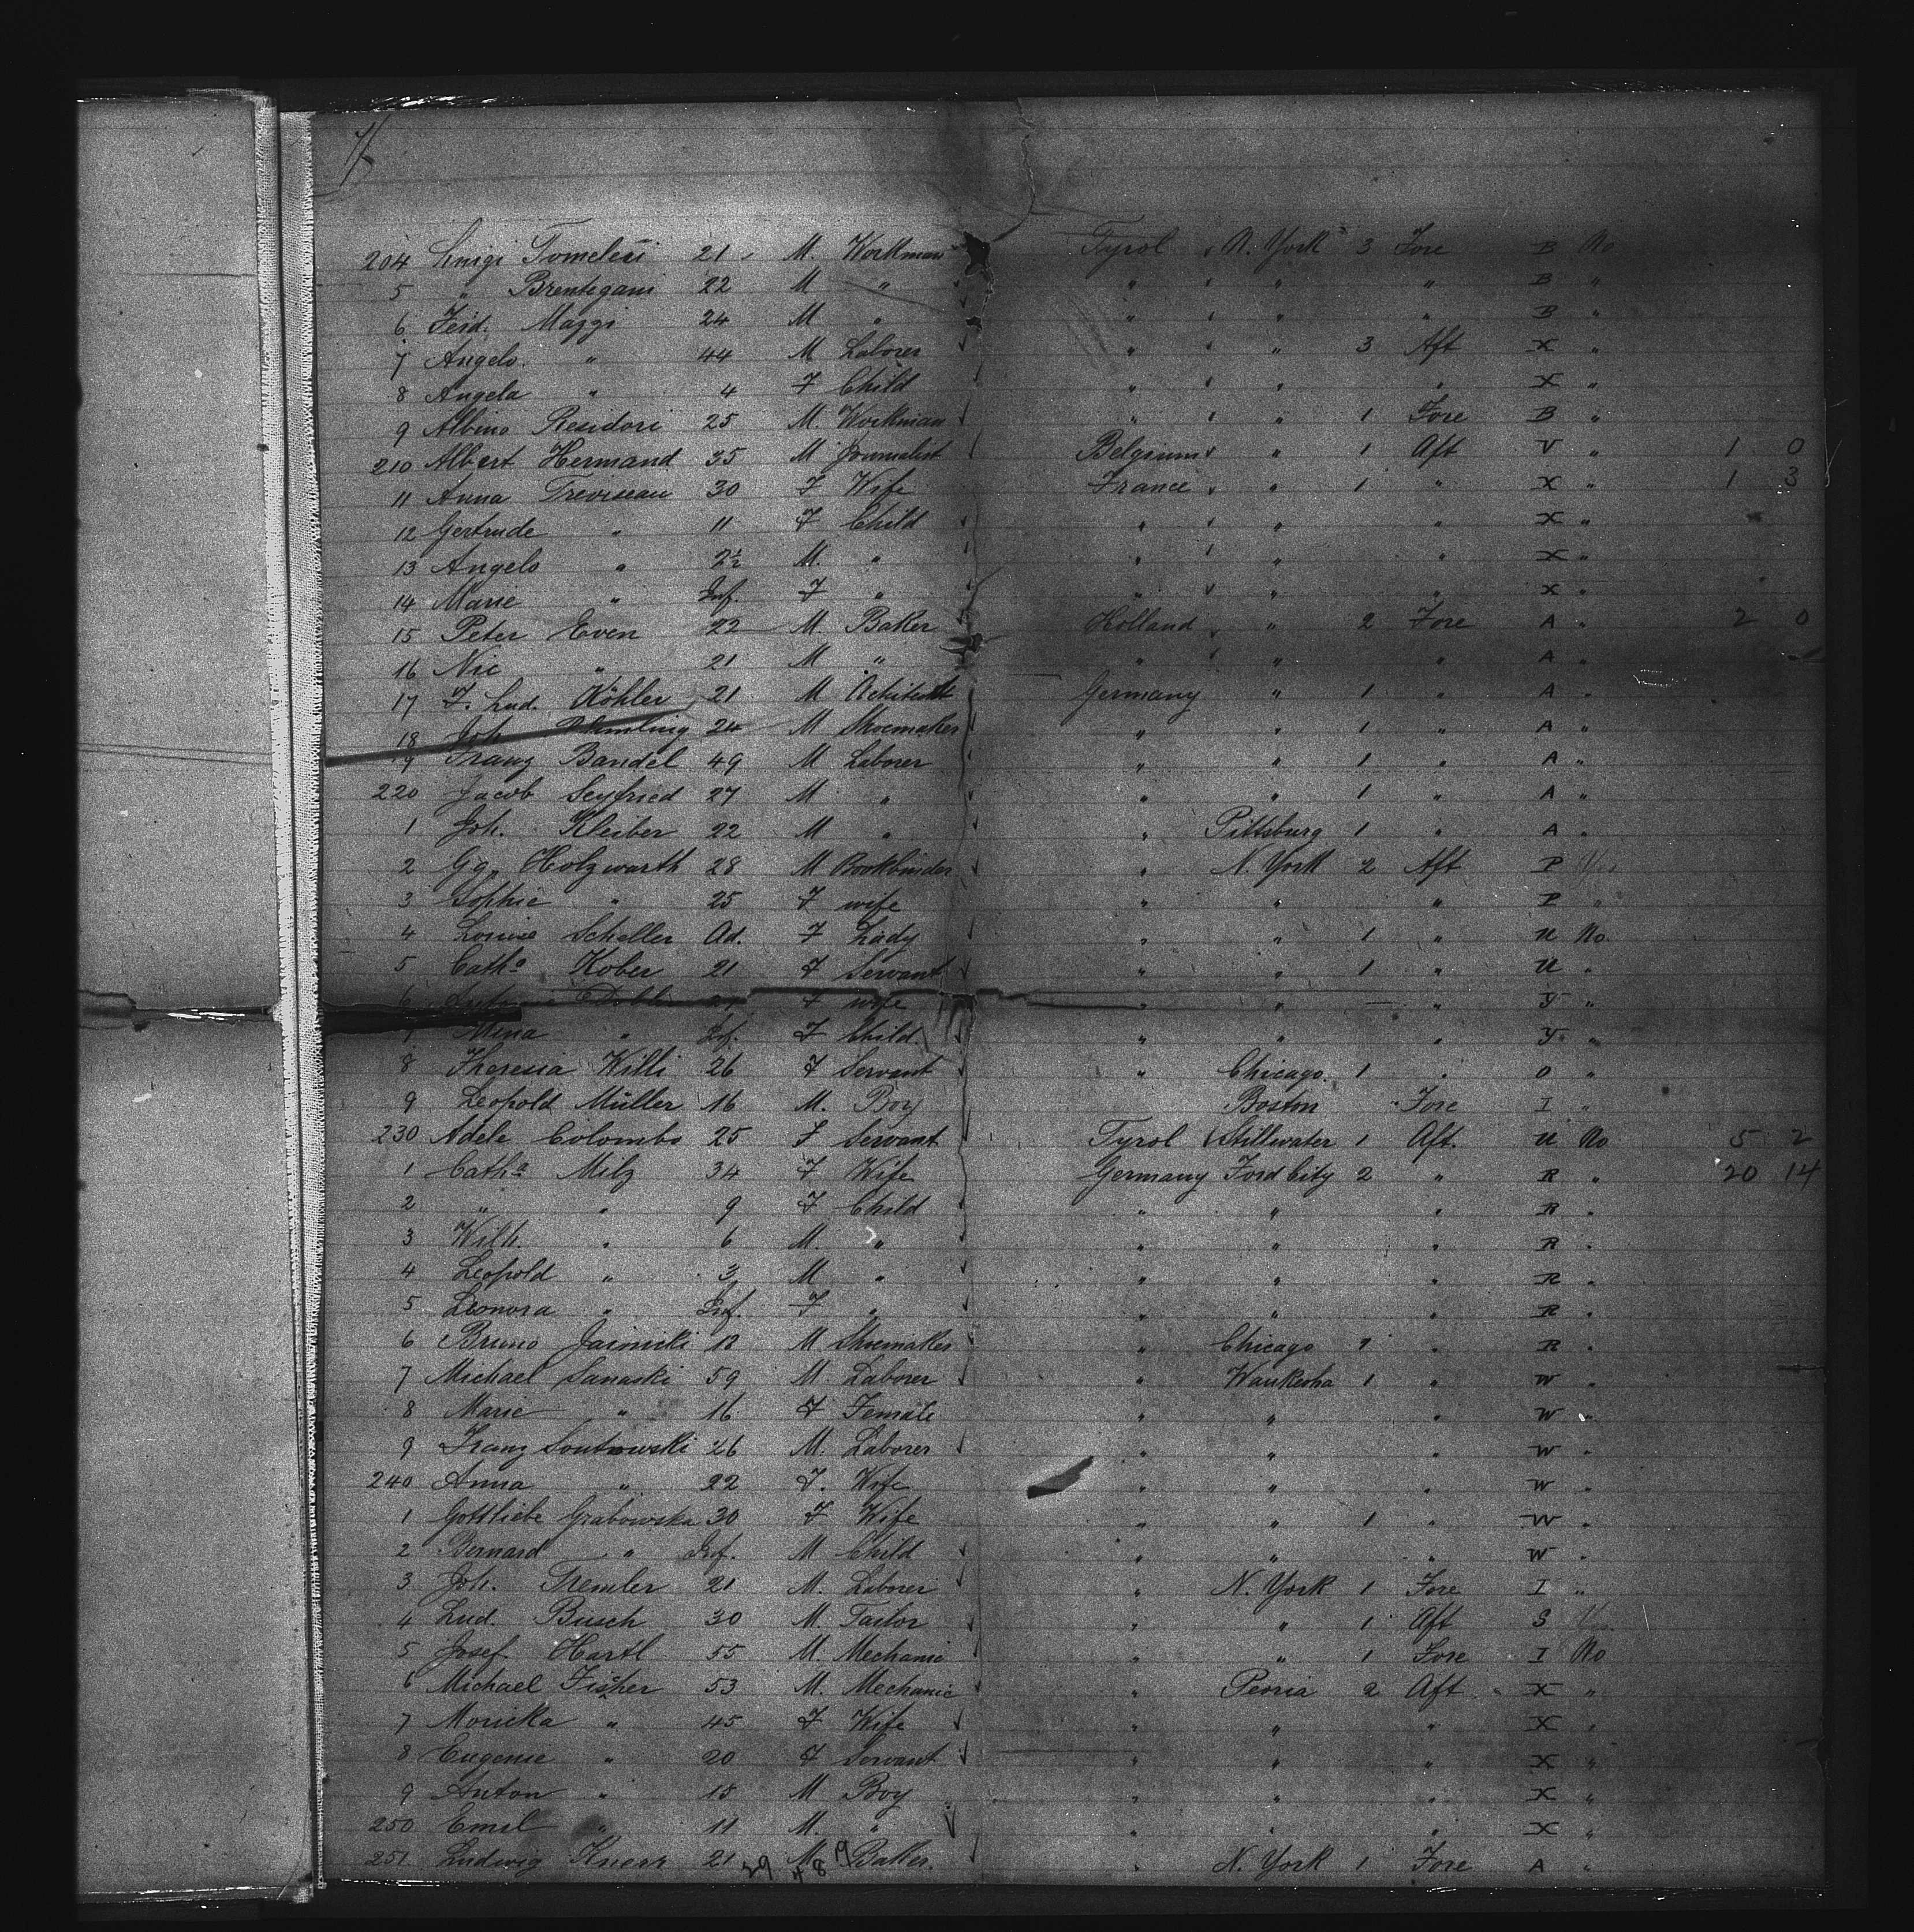 204 Luigi Tomelesi 21 M. Workman Tyrol N. York 3 Fore B No
5 " Brentegani 22 M " " " " B "
6 Ferd. Mazzi 24 M " " " " B "
7 Angelo " 44 M Laborer " " 3 Aft X "
8 Angela " 4 F Child " " " X "
9 Albino Residori 25 M. Workman " " 1 Fore B "
210 Albert Hermand 35 M Journalist Belgium " 1 Aft V " 1 0
11 Anna Treviseau 30 F Wife France " 1 " X " 1 3
12 Gertrude " 11 F Child " " " X "
13 Angelo " 2½ M. " " " " X "
14 Marie " Inf. F " " " " X "
15 Peter Even 22 M. Baker Holland " 2 Fore A " 2 0
16 Nic " 21 M " " " " A "
17 F. Lud. Köhler 21 M Achitect Germany " 1 " A "
18 Joh. 24 M Shoemaker " " 1 " A "
19 Franz Bandel 49 M Laborer " " 1 " A "
220 Jacob Seyfried 27 M " " " 1 " A "
1 Joh. Kleiber 22 M " " Pittsburg 1 " A "
2 Gg. Holzwarth 28 M Bookbinder " N. York 2 Aft P Yes
3 Sophie " 25 F wife " " " P "
4 Louise Scheller Ad. F Lady " " 1 " U No
5 Catha Kober 21 F Servant " " 1 " U "
6 F wife " " — " Y "
7 Mina " Inf. F Child " " " Y "
8 Theresia Willi 26 F Servant " Chicago. 1 " O "
9 Leopold Müller 16 M. Boy Boston " Fore I "
230 Adele Colombo 25 F Servant Tyrol Stillwater 1 Aft. U No 5 2
1 Catha Milz 34 F Wife Germany Ford City 2 " R " 20 14
2 " " 9 F Child " " " R "
3 Wilh. " 6 M. " " " " R "
4 Leopold " 3 M " " " " R "
5 Leonora " Inf. F " " " " R "
6 Bruno Jainicki 18 M Shoemaker " Chicago 1 " R "
7 Michael Sanaski 59 M. Laborer " Waukesha 1 " W "
8 Marie " 16 F Female " " " W "
9 Franz Sontowski 26 M. Laborer " " " W "
240 Anna " 22 F. Wife " " " W "
1 Gottliebe Grabowska 30 F Wife " " 1 " W "
2 Bernard " Inf. M Child " " " W "
3 Joh. Tremler 21 M. Laborer " N. York 1 Fore I "
4 Lud. Busch 30 M. Tailor " " 1 Aft S
5 Josef Hartl 55 M. Mechanic " " 1 Fore I No
6 Michael Fisher 53 M. Mechanic " Peoria 2 Aft X "
7 Monika " 45 F Wife " " " X "
8 Eugenie " 20 F Servant " " " X "
9 Anton " 15 M Boy " " " X "
250 Emil " 11 M. " " " " X "
251 Ludwig Kners 21 M. Baker. " N. York 1 Fore A "
29 48 19